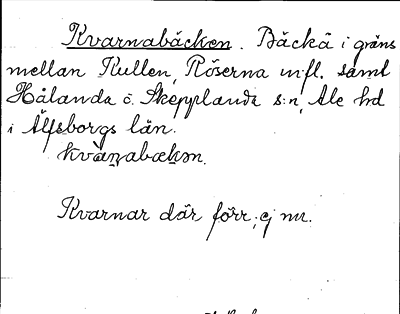 Kvarnabäcken. Bäckä i gräns
mellan Kullen, Röserna m.fl. samt
Hålanda o. Skepplanda s:n, Ale hd
i Älfsborgs län.
kvàn̥abækən.
Kvarnar där förr, ej nu.